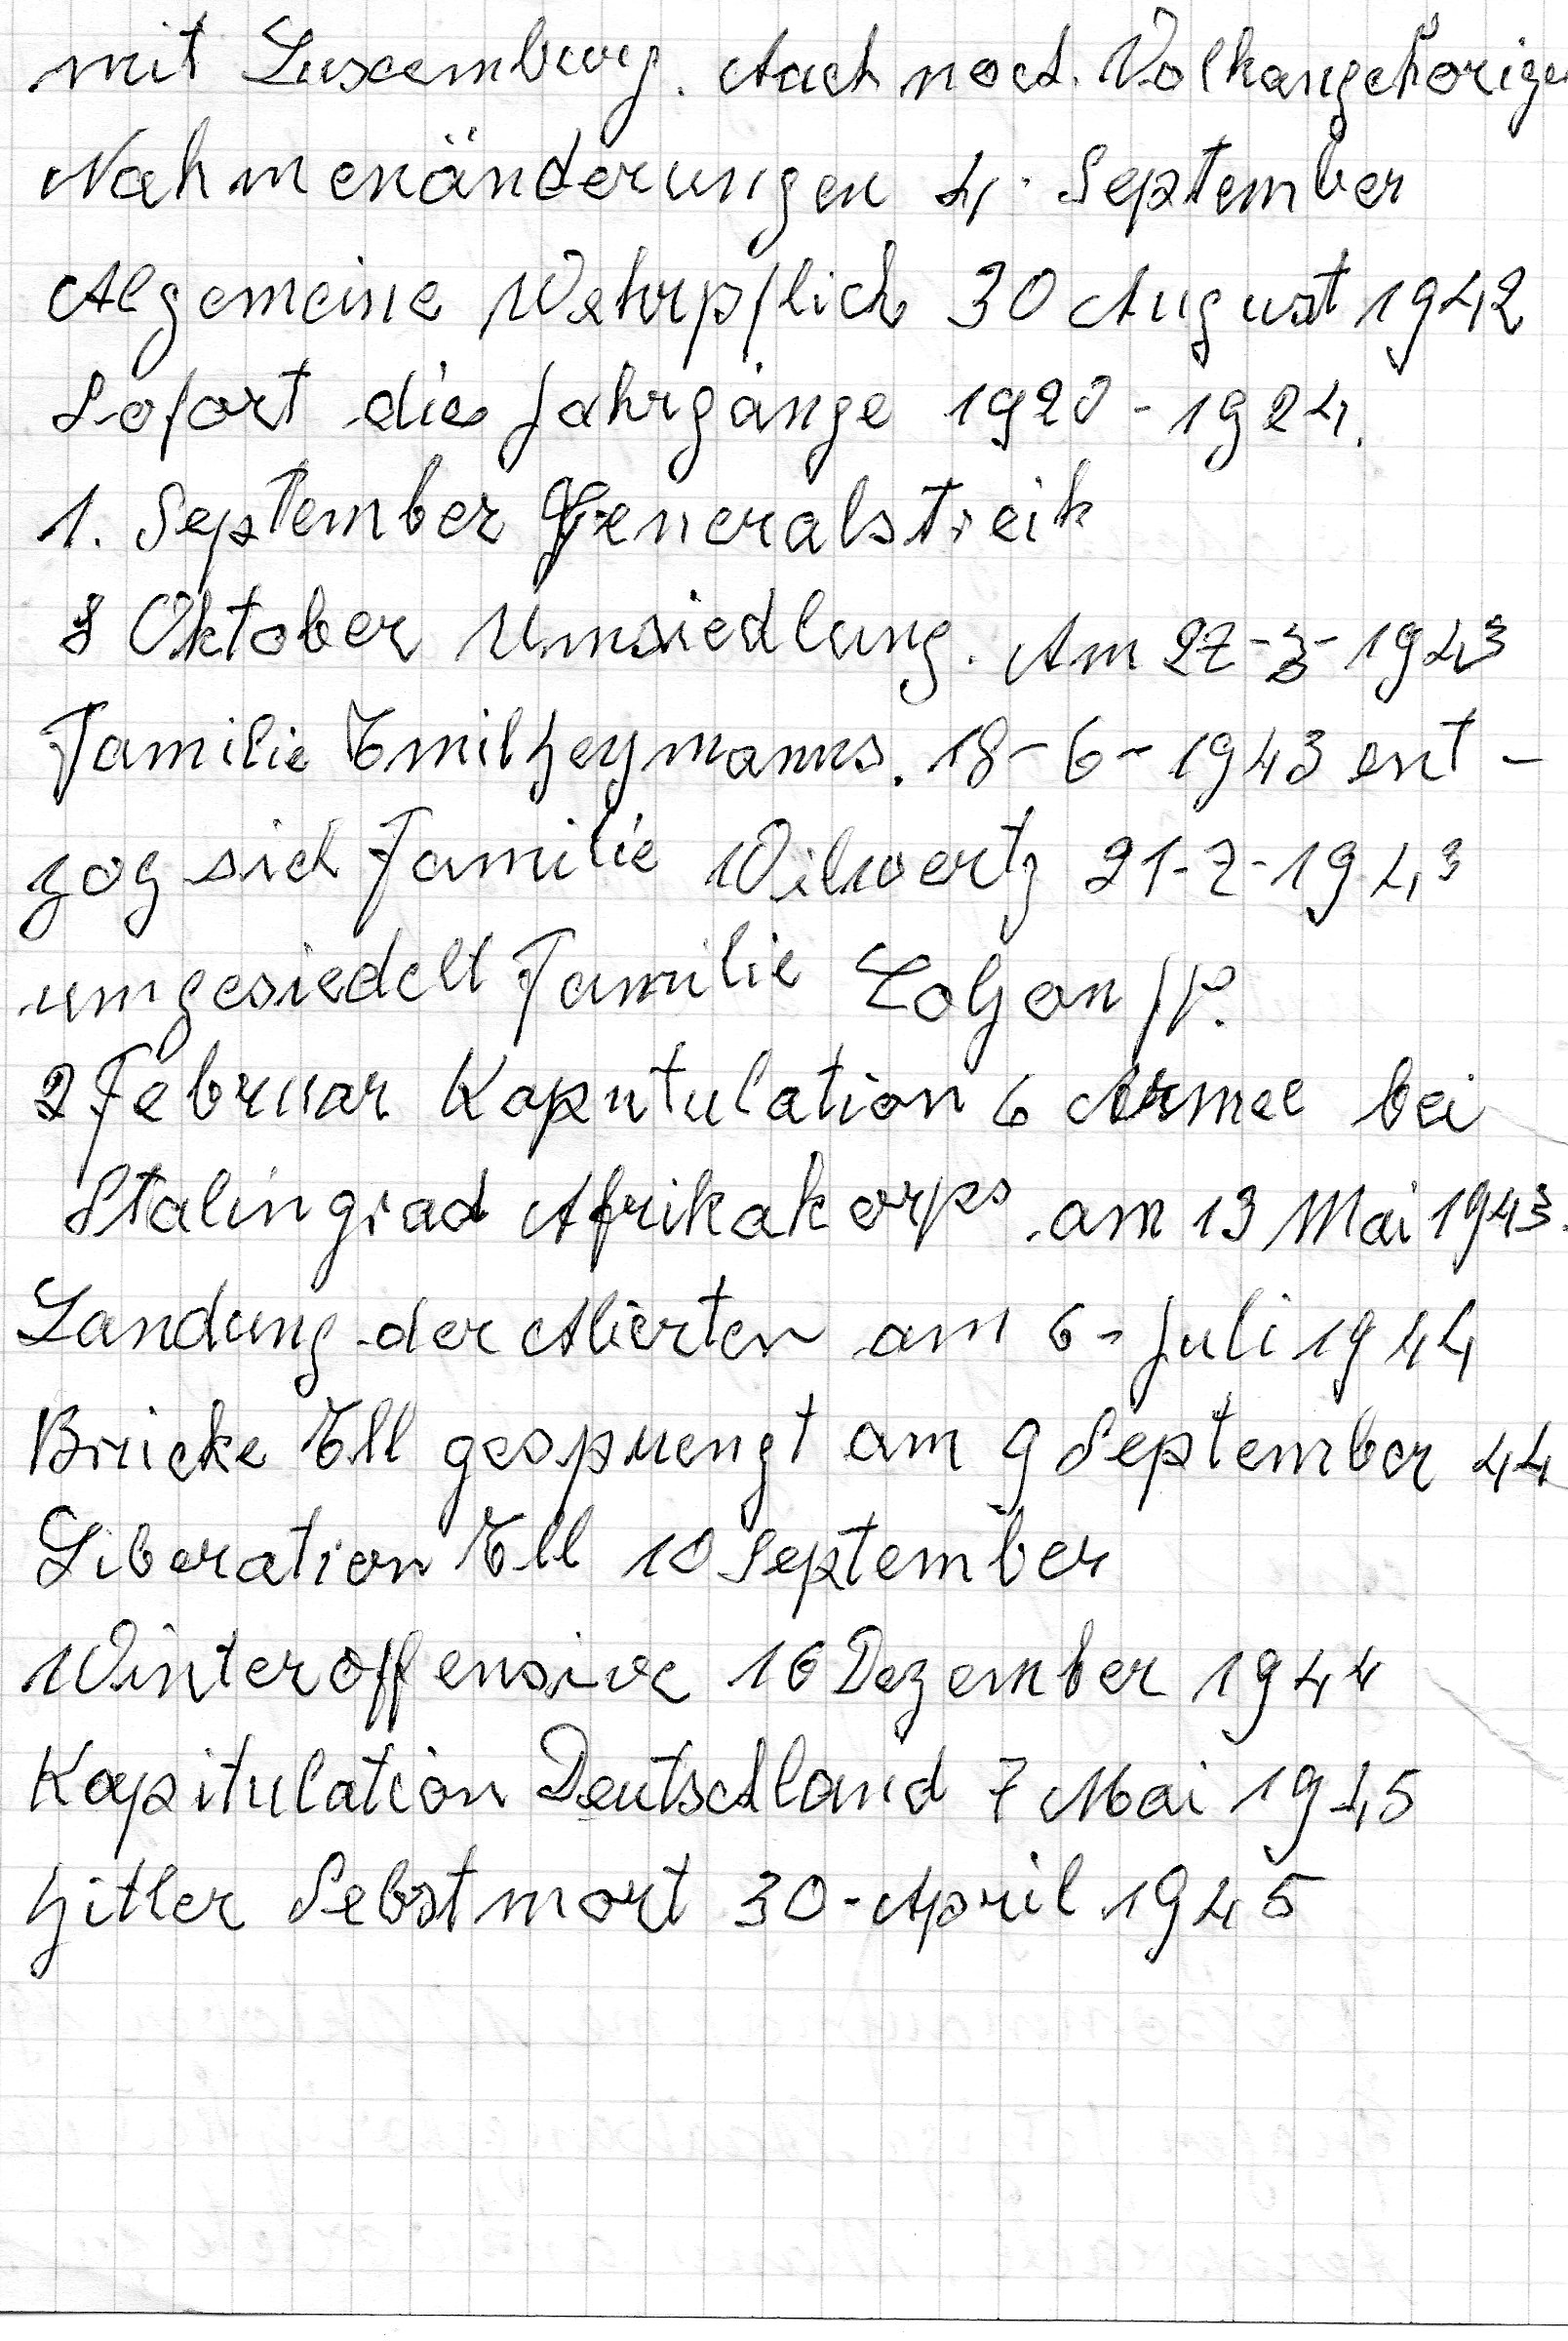 mit Luxemburg. Auch noch. Volkangehörige
Nahmenänderungen 4. September
Algemeine Wehrpflich 30 August 1942
Sofort die Jahrgänge 1920-1924.
1. September Generalstreik
8 Oktober Umsiedlung. Am 27-3-1943
Familie Emil Heymanns. 18-6-1943 ent-
zog sich Familie Wilwertz 21-7-1943
umgesiedelt Familie
2 Februar Kaputulation 6 Armee bei
Stalingrad Afrikakorps am 13 Mai 1943.
Landung der Alierten am 6-Juli 1944
Brücke Ell gesprengt am 9 September 44
Liberation Ell 10 September
Winteroffensive 16 Dezember 1944
Kapitulation Deutschland 7 Mai 1945
Hitler Sebstmort 30-April 1945